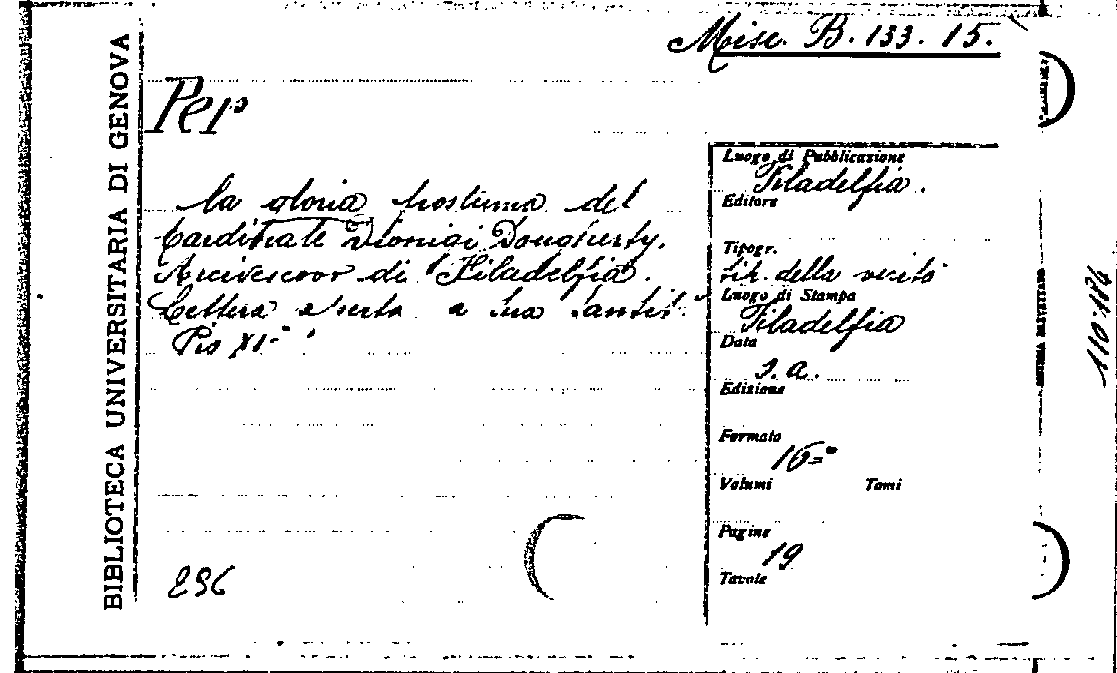 Misc. B. 133. 15.
BIBLIOTECA UNIVERSITARIA DI GENOVA
Per
la gloria postuma del
Cardinale Dionigi Dougherty.
Arcivescovo di Filadelfia.
Lettera aperta a Sua Santit.
Pio XI.
296
Luogo di Pubblicazione
Filadelfia.
Editore
Tipogr.
tip. della verità
Luogo di Stampa
Filadelfia
Data
s. a.
Edizione
Formato
16°
Volumi Tomi
Pagine
19
Tavole